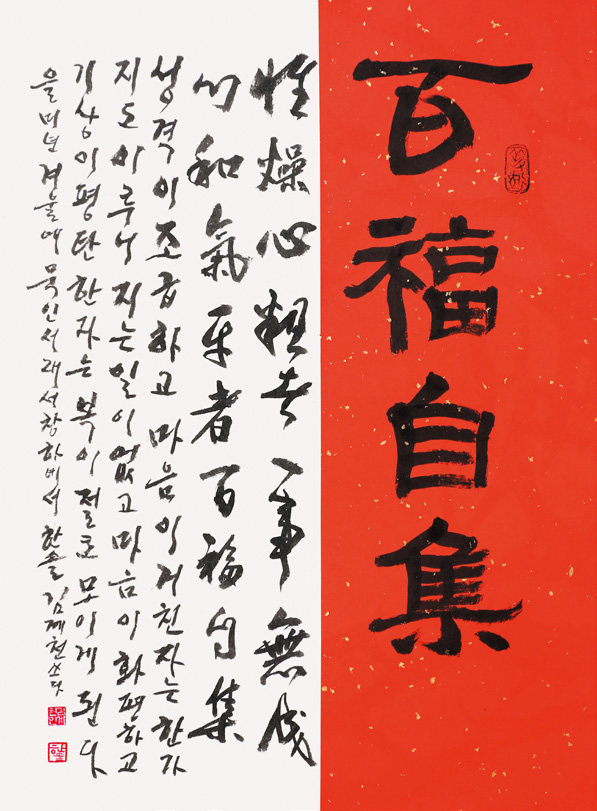 百福自集
性燥心粗者一事無成
心和氣平者百福自集
성격이 조급하고 마음이 거친자는 한가
지도 이루어 지는 일이 없고 마음이 화평하고
기상이 평탄한 자는 복이 절로 모이게 된다
을미년 겨울에 한솔 쓰다